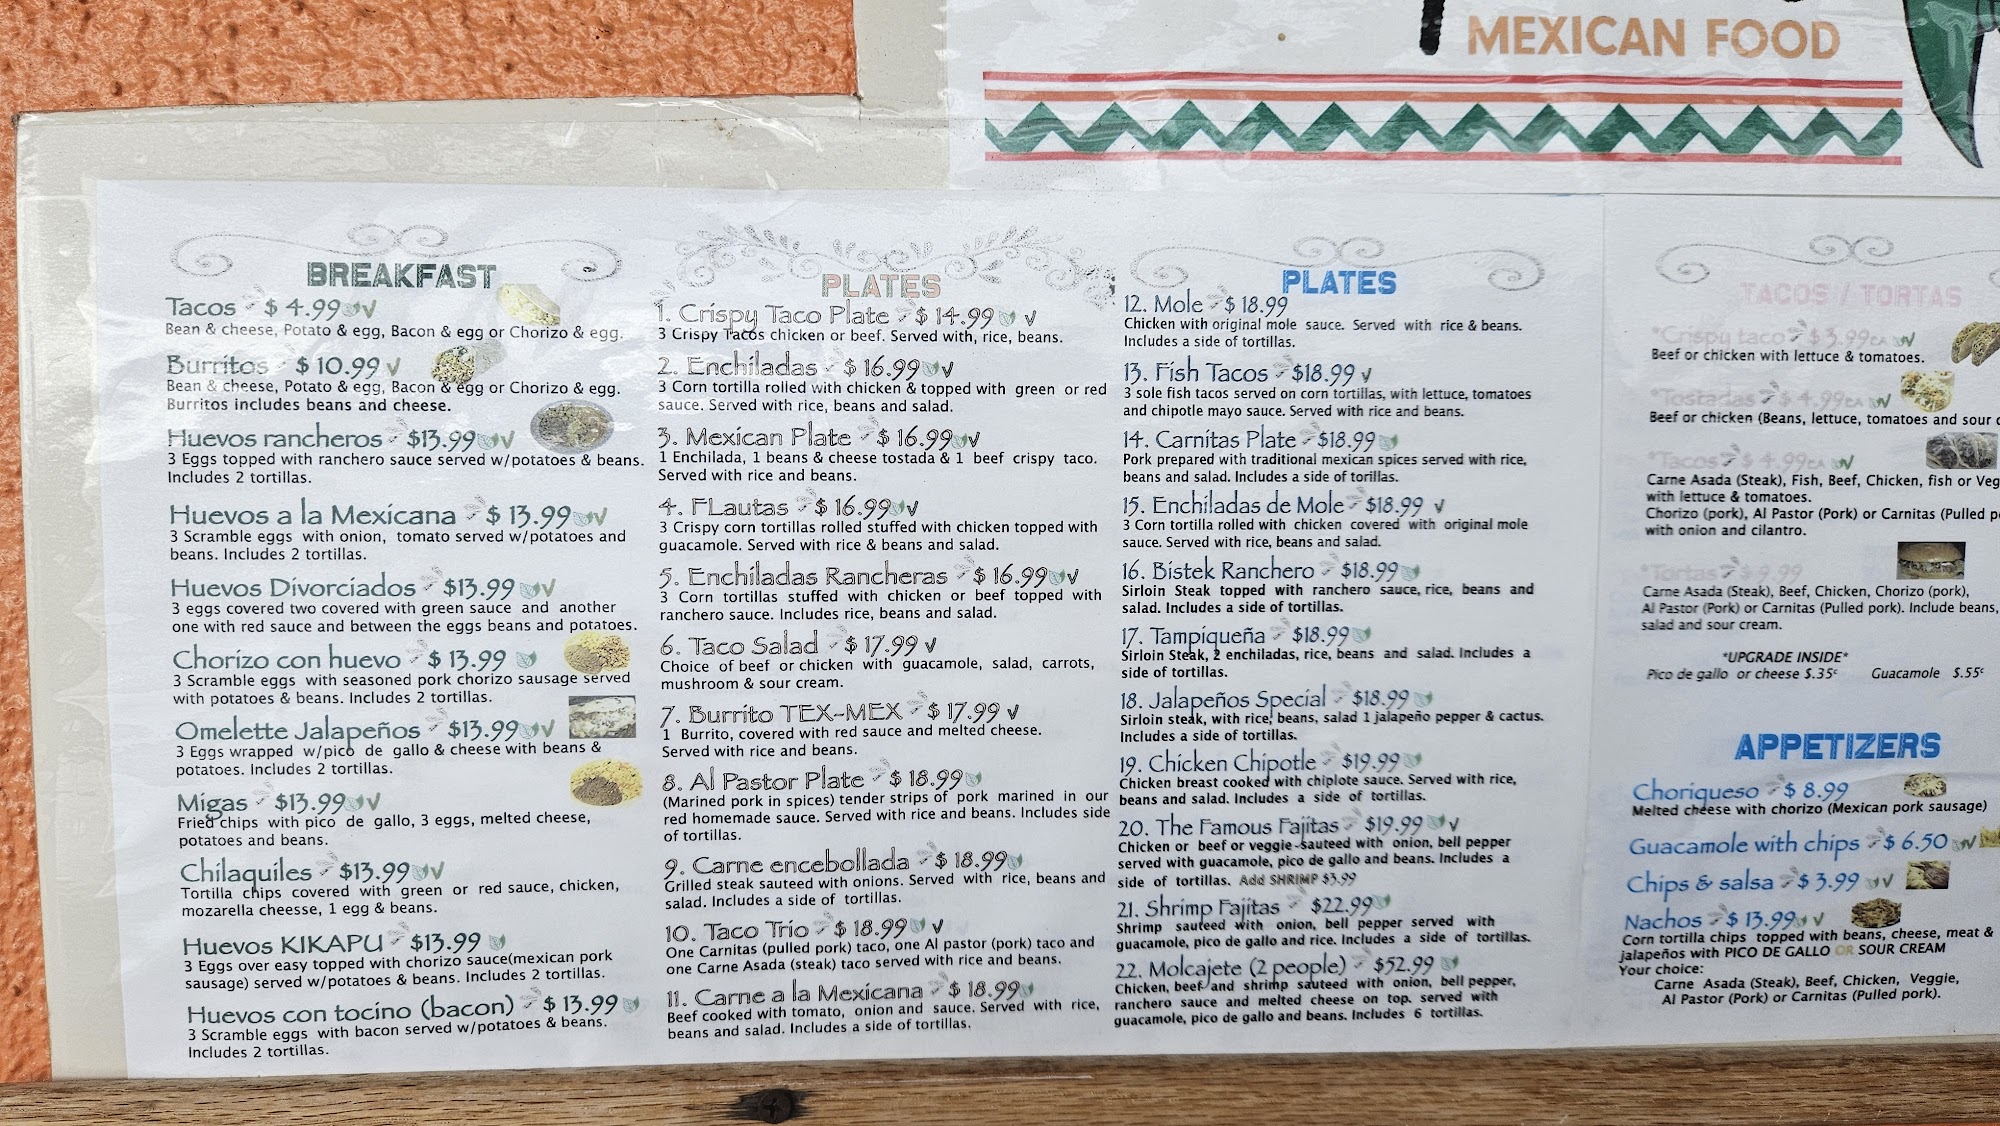 MEXICAN FOOD
BREAKFAST
Tacos $ 4.99 V
Bean & cheese, Potato & egg, Bacon & egg or Chorizo & egg.
Burritos $ 10.99 V
Bean & cheese, Potato & egg, Bacon & egg or Chorizo & egg.
Burritos includes beans and cheese.
Huevos rancheros $13.99 V
3 Eggs topped with ranchero sauce served w/potatoes & beans.
Includes 2 tortillas.
Huevos a la Mexicana $ 13.99 V
3 Scramble eggs with onion, tomato served w/potatoes and
beans. Includes 2 tortillas.
Huevos Divorciados $13.99 V
3 eggs covered two covered with green sauce and another
one with red sauce and between the eggs beans and potatoes.
Chorizo con huevo $ 13.99
3 Scramble eggs with seasoned pork chorizo sausage served
with potatoes & beans. Includes 2 tortillas.
Omelette Jalapeños $13.99 V
3 Eggs wrapped w/pico de gallo & cheese with beans &
potatoes. Includes 2 tortillas.
Migas $13.99 V
Fried chips with pico de gallo, 3 eggs, melted cheese,
potatoes and beans.
Chilaquiles $13.99 V
Tortilla chips covered with green or red sauce, chicken,
mozarella cheesse, 1 egg & beans.
Huevos KIKAPU $13.99
3 Eggs over easy topped with chorizo sauce(mexican pork
sausage) served w/potatoes & beans. Includes 2 tortillas.
Huevos con tocino (bacon) $ 13.99
3 Scramble eggs with bacon served w/potatoes & beans.
Includes 2 tortillas.
PLATES
1. Crispy Taco Plate $ 14.99 V
3 Crispy Tacos chicken or beef. Served with, rice, beans.
2. Enchiladas $ 16.99 V
3 Corn tortilla rolled with chicken & topped with green or red
sauce. Served with rice, beans and salad.
3. Mexican Plate $ 16.99 V
1 Enchilada, 1 beans & cheese tostada & 1 beef crispy taco.
Served with rice and beans.
4. FLautas $ 16.99 V
3 Crispy corn tortillas rolled stuffed with chicken topped with
guacamole. Served with rice & beans and salad.
5. Enchiladas Rancheras $ 16.99 V
3 Corn tortillas stuffed with chicken or beef topped with
ranchero sauce. Includes rice, beans and salad.
6. Taco Salad $ 17.99 V
Choice of beef or chicken with guacamole, salad, carrots,
mushroom & sour cream.
7. Burrito TEX-MEX $ 17.99 V
1 Burrito, covered with red sauce and melted cheese.
Served with rice and beans.
8. Al Pastor Plate $ 18.99
(Marined pork in spices) tender strips of pork marined in our
red homemade sauce. Served with rice and beans. Includes side
of tortillas.
9. Carne encebollada $ 18.99
Grilled steak sauteed with onions. Served with rice, beans and
salad. Includes a side of tortillas.
10. Taco Trio $ 18.99 V
One Carnitas (pulled pork) taco, one Al pastor (pork) taco and
one Carne Asada (steak) taco served with rice and beans.
11. Carne a la Mexicana $ 18.99
Beef cooked with tomato, onion and sauce. Served with rice,
beans and salad. Includes a side of tortillas.
PLATES
12. Mole $ 18.99
Chicken with original mole sauce. Served with rice & beans.
Includes a side of tortillas.
13. Fish Tacos $18.99 V
3 sole fish tacos served on corn tortillas, with lettuce, tomatoes
and chipotle mayo sauce. Served with rice and beans.
14. Carnitas Plate $18.99
Pork prepared with traditional mexican spices served with rice,
beans and salad. Includes a side of torillas.
15. Enchiladas de Mole $18.99 V
3 Corn tortilla rolled with chicken covered with original mole
sauce. Served with rice, beans and salad.
16. Bistek Ranchero $18.99
Sirloin Steak topped with ranchero sauce, rice, beans and
salad. Includes a side of tortillas.
17. Tampiqueña $18.99
Sirloin Steak, 2 enchiladas, rice, beans and salad. Includes a
side of tortillas.
18. Jalapeños Special $18.99
Sirloin steak, with rice, beans, salad 1 jalapeño pepper & cactus.
Includes a side of tortillas.
19. Chicken Chipotle $19.99
Chicken breast cooked with chiplote sauce. Served with rice,
beans and salad. Includes a side of tortillas.
20. The Famous Fajitas $19.99 V
Chicken or beef or veggie-sauteed with onion, bell pepper
served with guacamole, pico de gallo and beans. Includes a
side of tortillas. Add SHRIMP $3.99
21. Shrimp Fajitas $22.99
Shrimp sauteed with onion, bell pepper served with
guacamole, pico de gallo and rice. Includes a side of tortillas.
22. Molcajete (2 people) $52.99
Chicken, beef and shrimp sauteed with onion, bell pepper,
ranchero sauce and melted cheese on top. served with
guacamole, pico de gallo and beans. Includes 6 tortillas.
TACOS / TORTAS
*Crispy taco $ 3.99 EA V
Beef or chicken with lettuce & tomatoes.
*Tostadas $ 4.99 EA V
Beef or chicken (Beans, lettuce, tomatoes and sour
*Tacos $ 4.99 EA V
Carne Asada (Steak), Fish, Beef, Chicken, fish or Veg
with lettuce & tomatoes.
Chorizo (pork), Al Pastor (Pork) or Carnitas (Pulled
with onion and cilantro.
*Tortas $ 9.99
Carne Asada (Steak), Beef, Chicken, Chorizo (pork),
Al Pastor (Pork) or Carnitas (Pulled pork). Include beans,
salad and sour cream.
*UPGRADE INSIDE*
Pico de gallo or cheese $.35¢ Guacamole $.55¢
APPETIZERS
Choriqueso $ 8.99
Melted cheese with chorizo (Mexican pork sausage)
Guacamole with chips $ 6.50 V
Chips & salsa $ 3.99 V
Nachos $ 13.99 V
Corn tortilla chips topped with beans, cheese, meat &
jalapeños with PICO DE GALLO OR SOUR CREAM
Your choice:
Carne Asada (Steak), Beef, Chicken, Veggie,
Al Pastor (Pork) or Carnitas (Pulled pork).